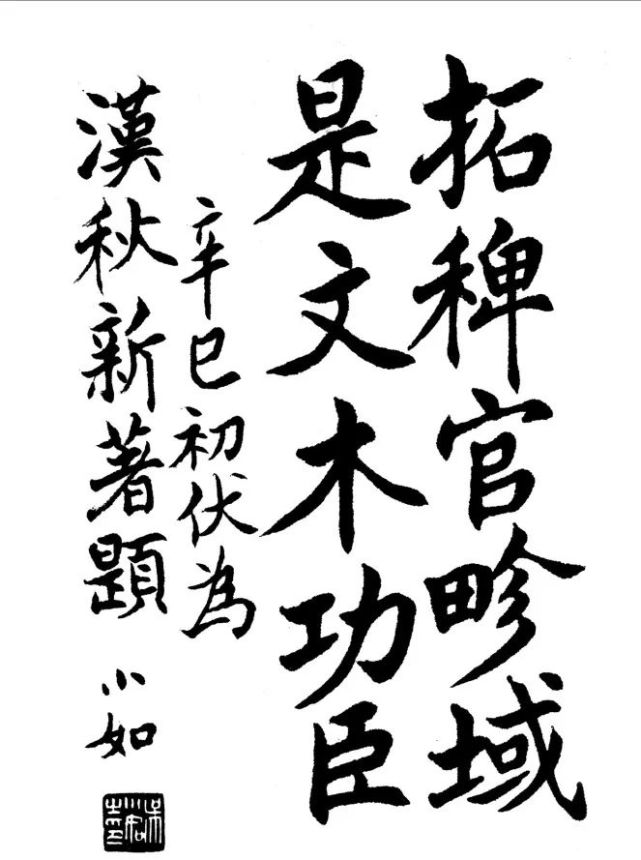 拓稗官畛域
是文木功臣
辛巳初伏為
漢秋新著題
小如